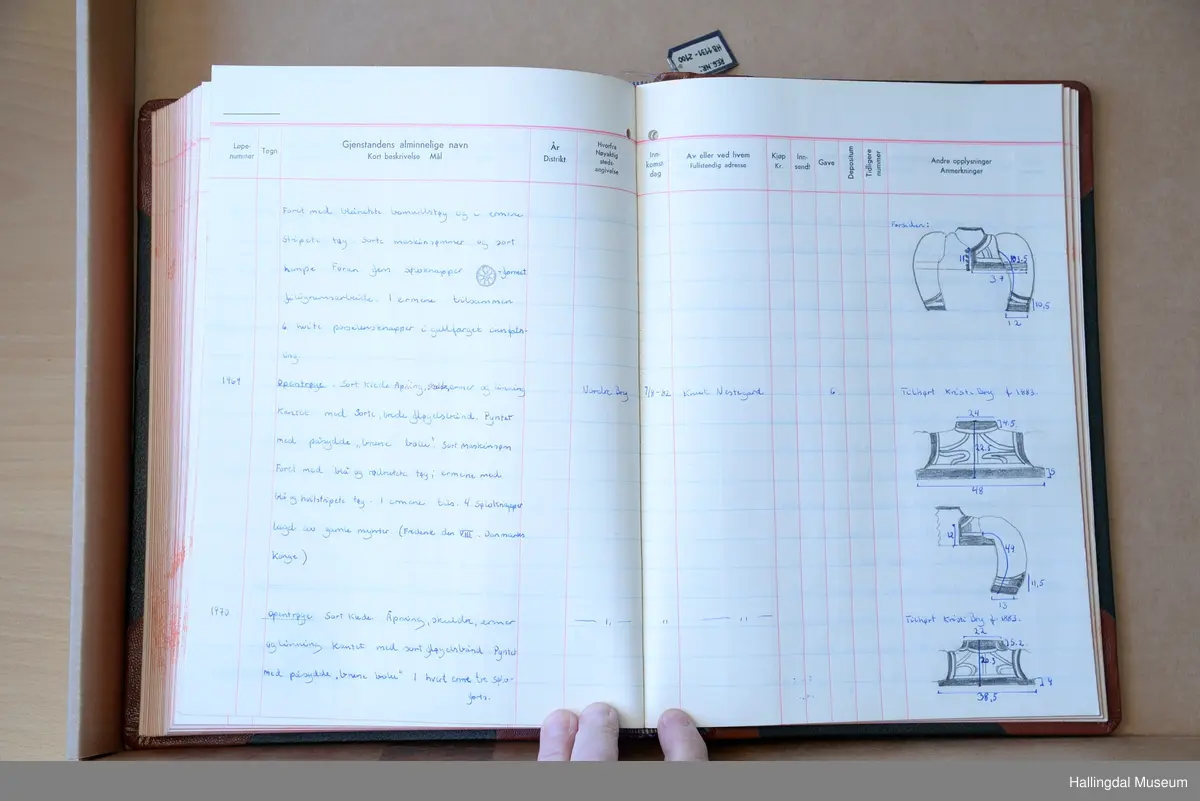 REG.NR.:
HB 1131 - 2100
Løpe-
nummer
Tegn
Gjenstandens alminnelige navn
Kort beskrivelse Mål
År
Distrikt
Hvorfra
Nøyaktig
steds-
angivelse
Inn-
komst-
dag
Av eller ved hvem
Fullstendig adresse
Kjøp
Kr.
Inn-
sendt
Gave
Depositum
Tidligere
nummer
Andre opplysninger
Anmerkninger
Foret med tøy og i ermene
stripete tøy. Sorte maskinsømmer og sort
kempe Foran fem spissknapper -formet
filigransarbeide. I ermene tilsammen
6 hvite porselensknapper i gullfarget innfatn-
ing.
Forsiden:
11
102.5
34
10,5
12
1969
Opentrøye. Sort klede Åpning, ermer og linning
Kantet med sorte, brede fløyelsbånd. Pyntet
med påsydde "krene boler". Sort maskinsøm
Foret med blå og tøy, i ermene med
blå og hvitstripete tøy. I ermene tils. 4 sølvknapper
lagd av gamle mynter. (Frederik den VIII. Danmarks
Konge)
Nordre Bry
7/8-82
Knut Nestegard
6
Tilhørt Kristi Bry f 1883.
24
4.5
22.5
5
48
12
49
11,5
13
1970
Opentrøye Sort klede. Åpning, skuldre, ermer
og linning kantet med sort fløyelsbånd. Pyntet
med påsydde "krene boler" I hvert erme tre sølv-
forts.
— " —
"
— " —
Tilhørt Kristi Bry f 1883.
22
5.2
20.3
4
38,5
Hallingdal Museum